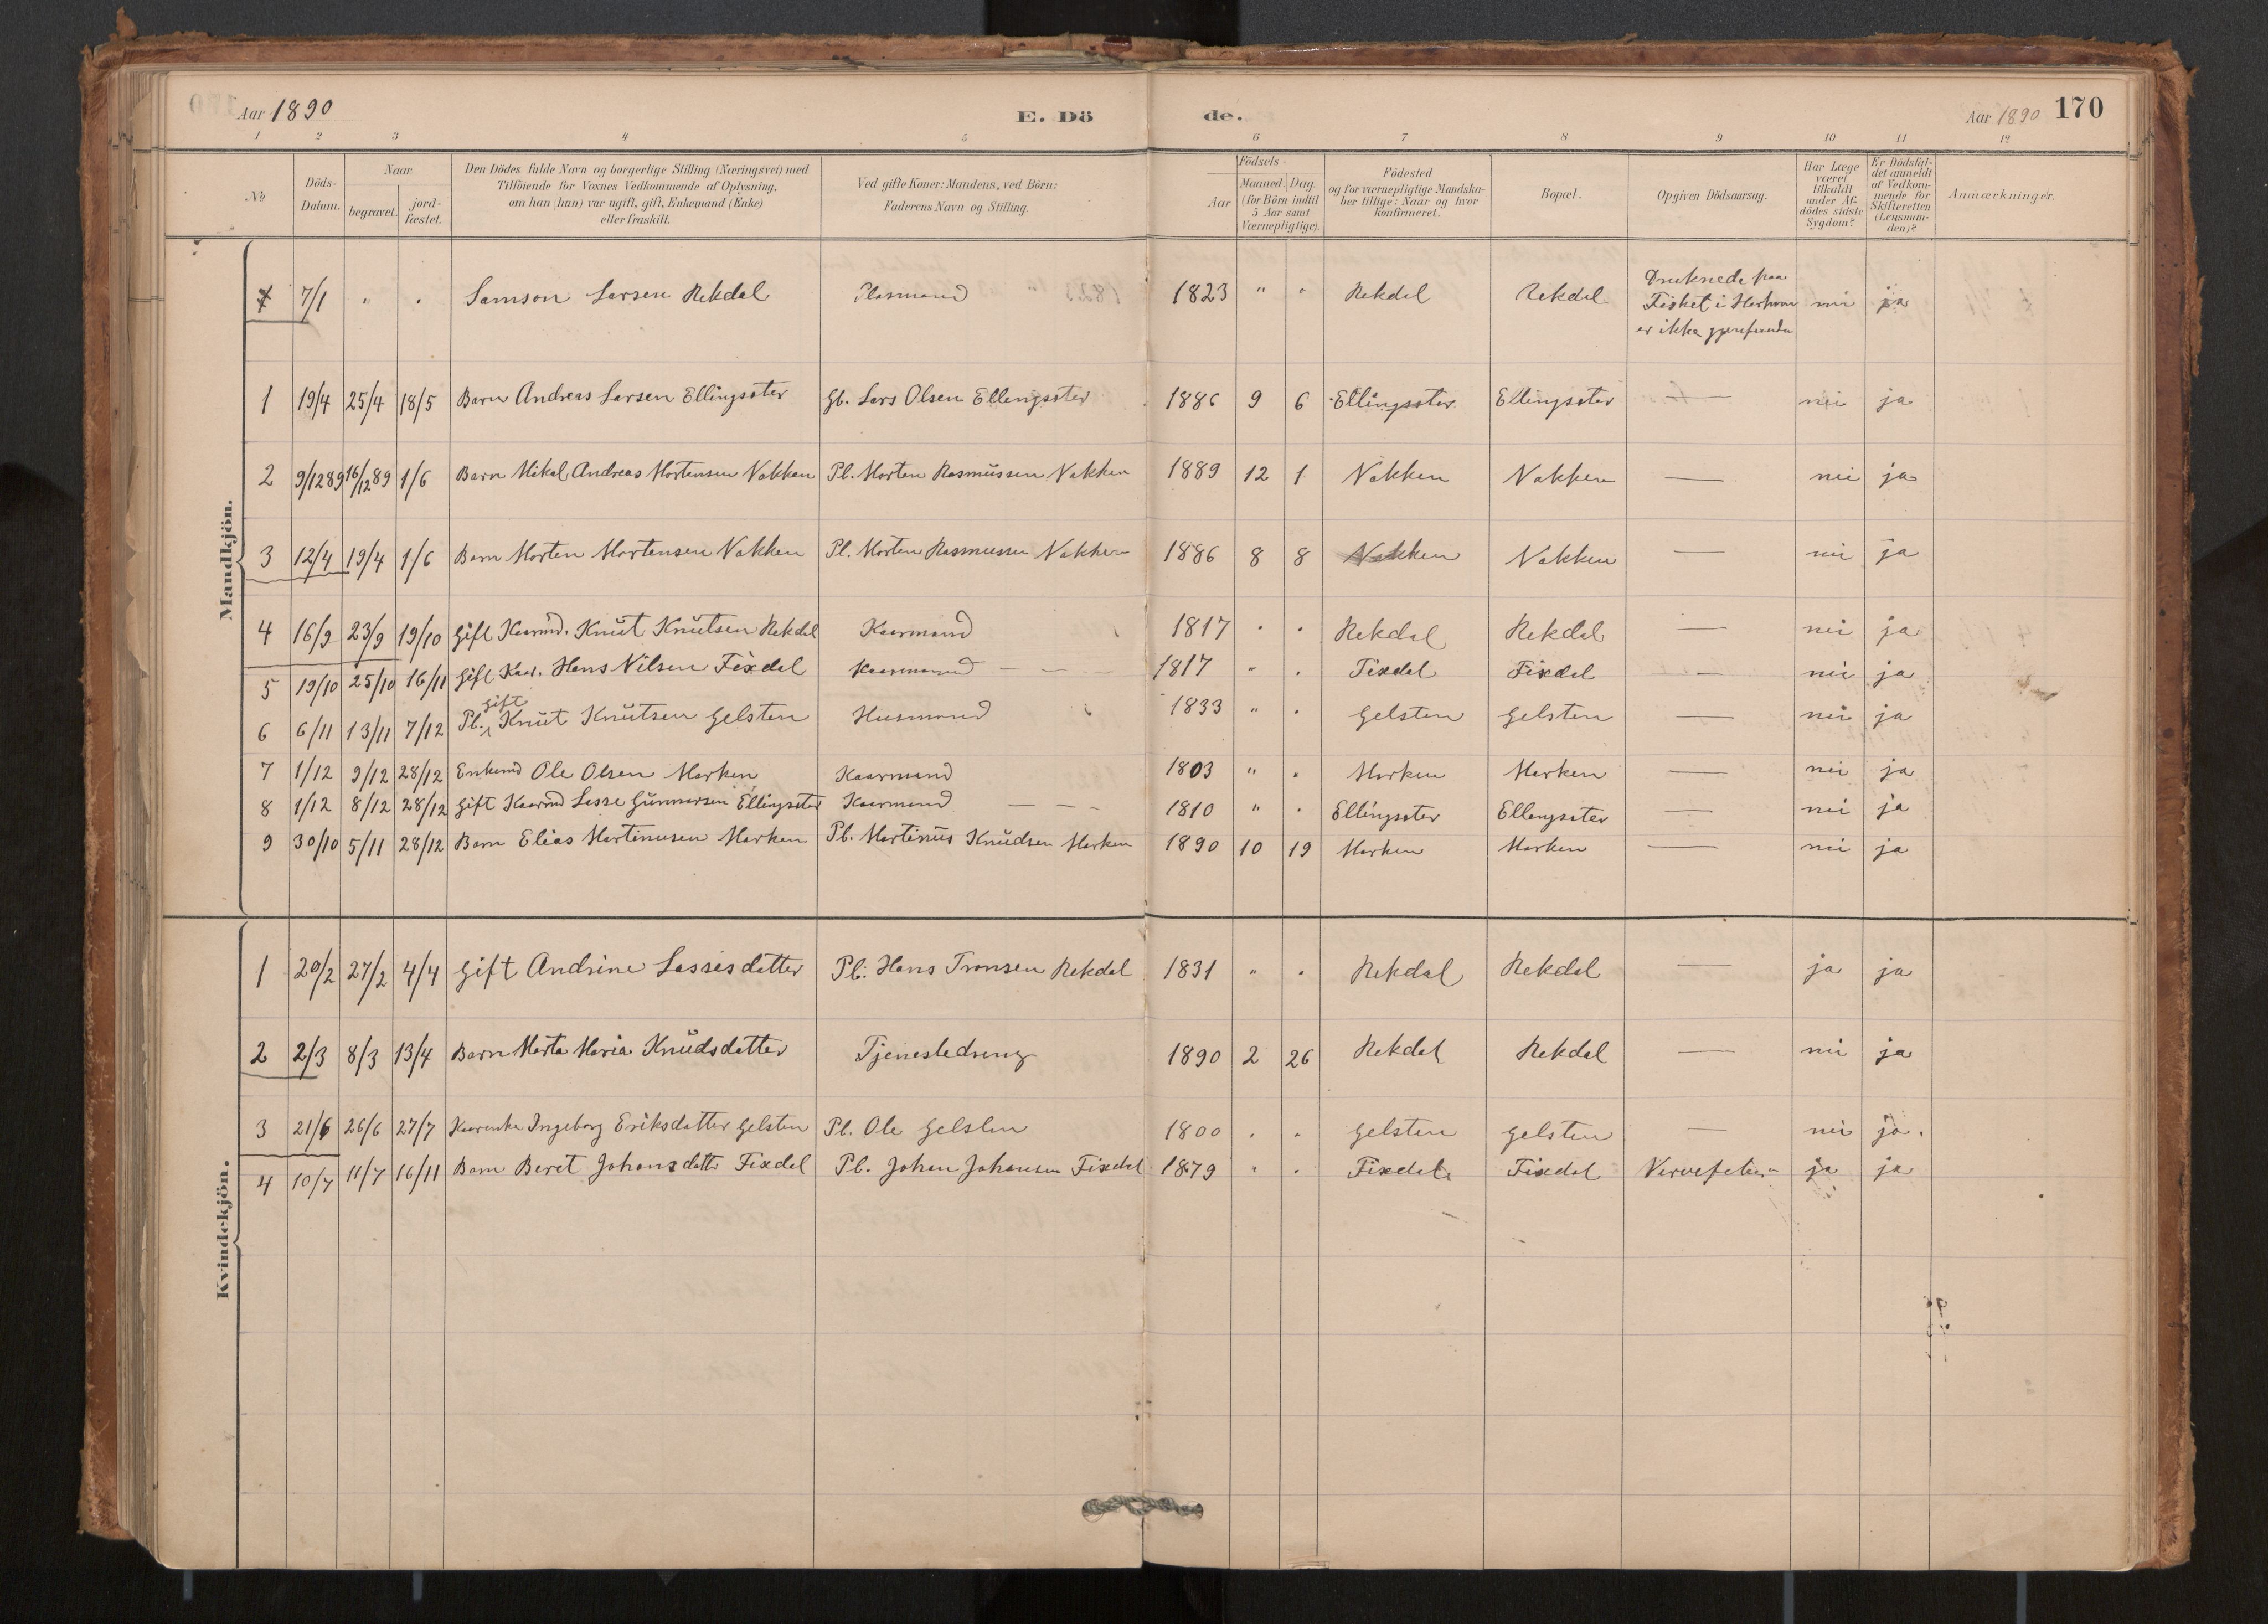 Aar 1890
E. Dö
de.
Aar 1890 170
1 2 3 4 5 6 7 8 9 10 11 12
No
Döds-
Datum.
Naar
begravet.
jord-
fæstet.
Den Dödes fulde Navn og borgerlige Stilling (Næringsvei) med
Tilföiende for Voxnes Vedkommende af Oplysning,
om han (hun) var ugift, gift, Enkemand (Enke)
eller fraskilt.
Ved gifte Koner: Mandens, ved Börn:
Faderens Navn og Stilling.
Födsels-
Aar
Maaned. Dag
(for Börn indtil
5 Aar samt
Værnepligtige).
Födested
og for værnepligtige Mandska-
ber tillige: Naar og hvor
konfirmeret.
Bopæl.
Opgiven Dödsaarsag.
Har Læge
været
tilkaldt
under Af-
dödes sidste
Sygdom?
Er Dödsfal-
det anmeldt
af Vedkom-
mende for
Skifteretten
(Lensman-
den)?
Anmærkninger.
Mandkjön.
7/1 " " Samson Larsen Rekdal Plasmand 1823 " " Rekdal Rekdal Druknede paa
Fisket i
er ikke nei ja
1 19/4 25/4 18/5 Barn Andreas Larsen Ellingsæter Gb. Lars Olsen Ellingsæter 1886 9 6 Ellingsæter Ellingsæter — nei ja
2 9/12 89 16/12 89 1/6 Barn Mikal Andreas Mortensen Nakken Pl. Morten Rasmussen Nakken 1889 12 1 Nakken Nakken — nei ja
3 12/4 19/4 1/6 Barn Morten Mortensen Nakken Pl. Morten Rasmussen Nakken 1886 8 8 Nakken Nakken — nei ja
4 16/9 23/9 19/10 Gift Kaarmd. Knut Knutsen Rekdal Kaarmand 1817 " " Rekdal Rekdal — nei ja
5 19/10 25/10 16/11 Gift Kaar. Hans Nilsen Fixdal Kaarmand — — — 1817 " " Fixdal Fixdal — nei ja
gift
6 6/11 13/11 7/12 Pl. Knut Knutsen Gelsten Husmand 1833 " " Gelsten Gelsten — nei ja
7 1/12 9/12 28/12 Enkemd Ole Olsen Marken Kaarmand 1803 " " Marken Marken — nei ja
8 1/12 8/12 28/12 Gift Kaarmd Lasse Gunnarsen Ellingsæter Kaarmand — — — 1810 " " Ellingsæter Ellingsæter — nei ja
9 30/10 5/11 28/12 Barn Elias Martinusen Marken Pl. Martinus Knudsen Marken 1890 10 19 Marken Marken — nei ja
Kvindekjön.
1 20/2 27/2 4/4 Gift Andrine Lassesdatter Pl. Hans Tronsen Rekdal 1831 " " Rekdal Rekdal — ja ja
2 2/3 8/3 13/4 Barn Marta Maria Knudsdatter Tjenestedreng 1890 2 26 Rekdal Rekdal — nei ja
3 21/6 26/6 27/7 Kaarenke Ingeborg Eriksdatter Gelsten Pl. Ole Gelsten 1800 " " Gelsten Gelsten — nei ja.
4 10/7 11/7 16/11 Barn Beret Johansdatter Fixdal Pl. Johan Johansen Fixdal 1879 " " Fixdal Fixdal Nervefeber ja ja